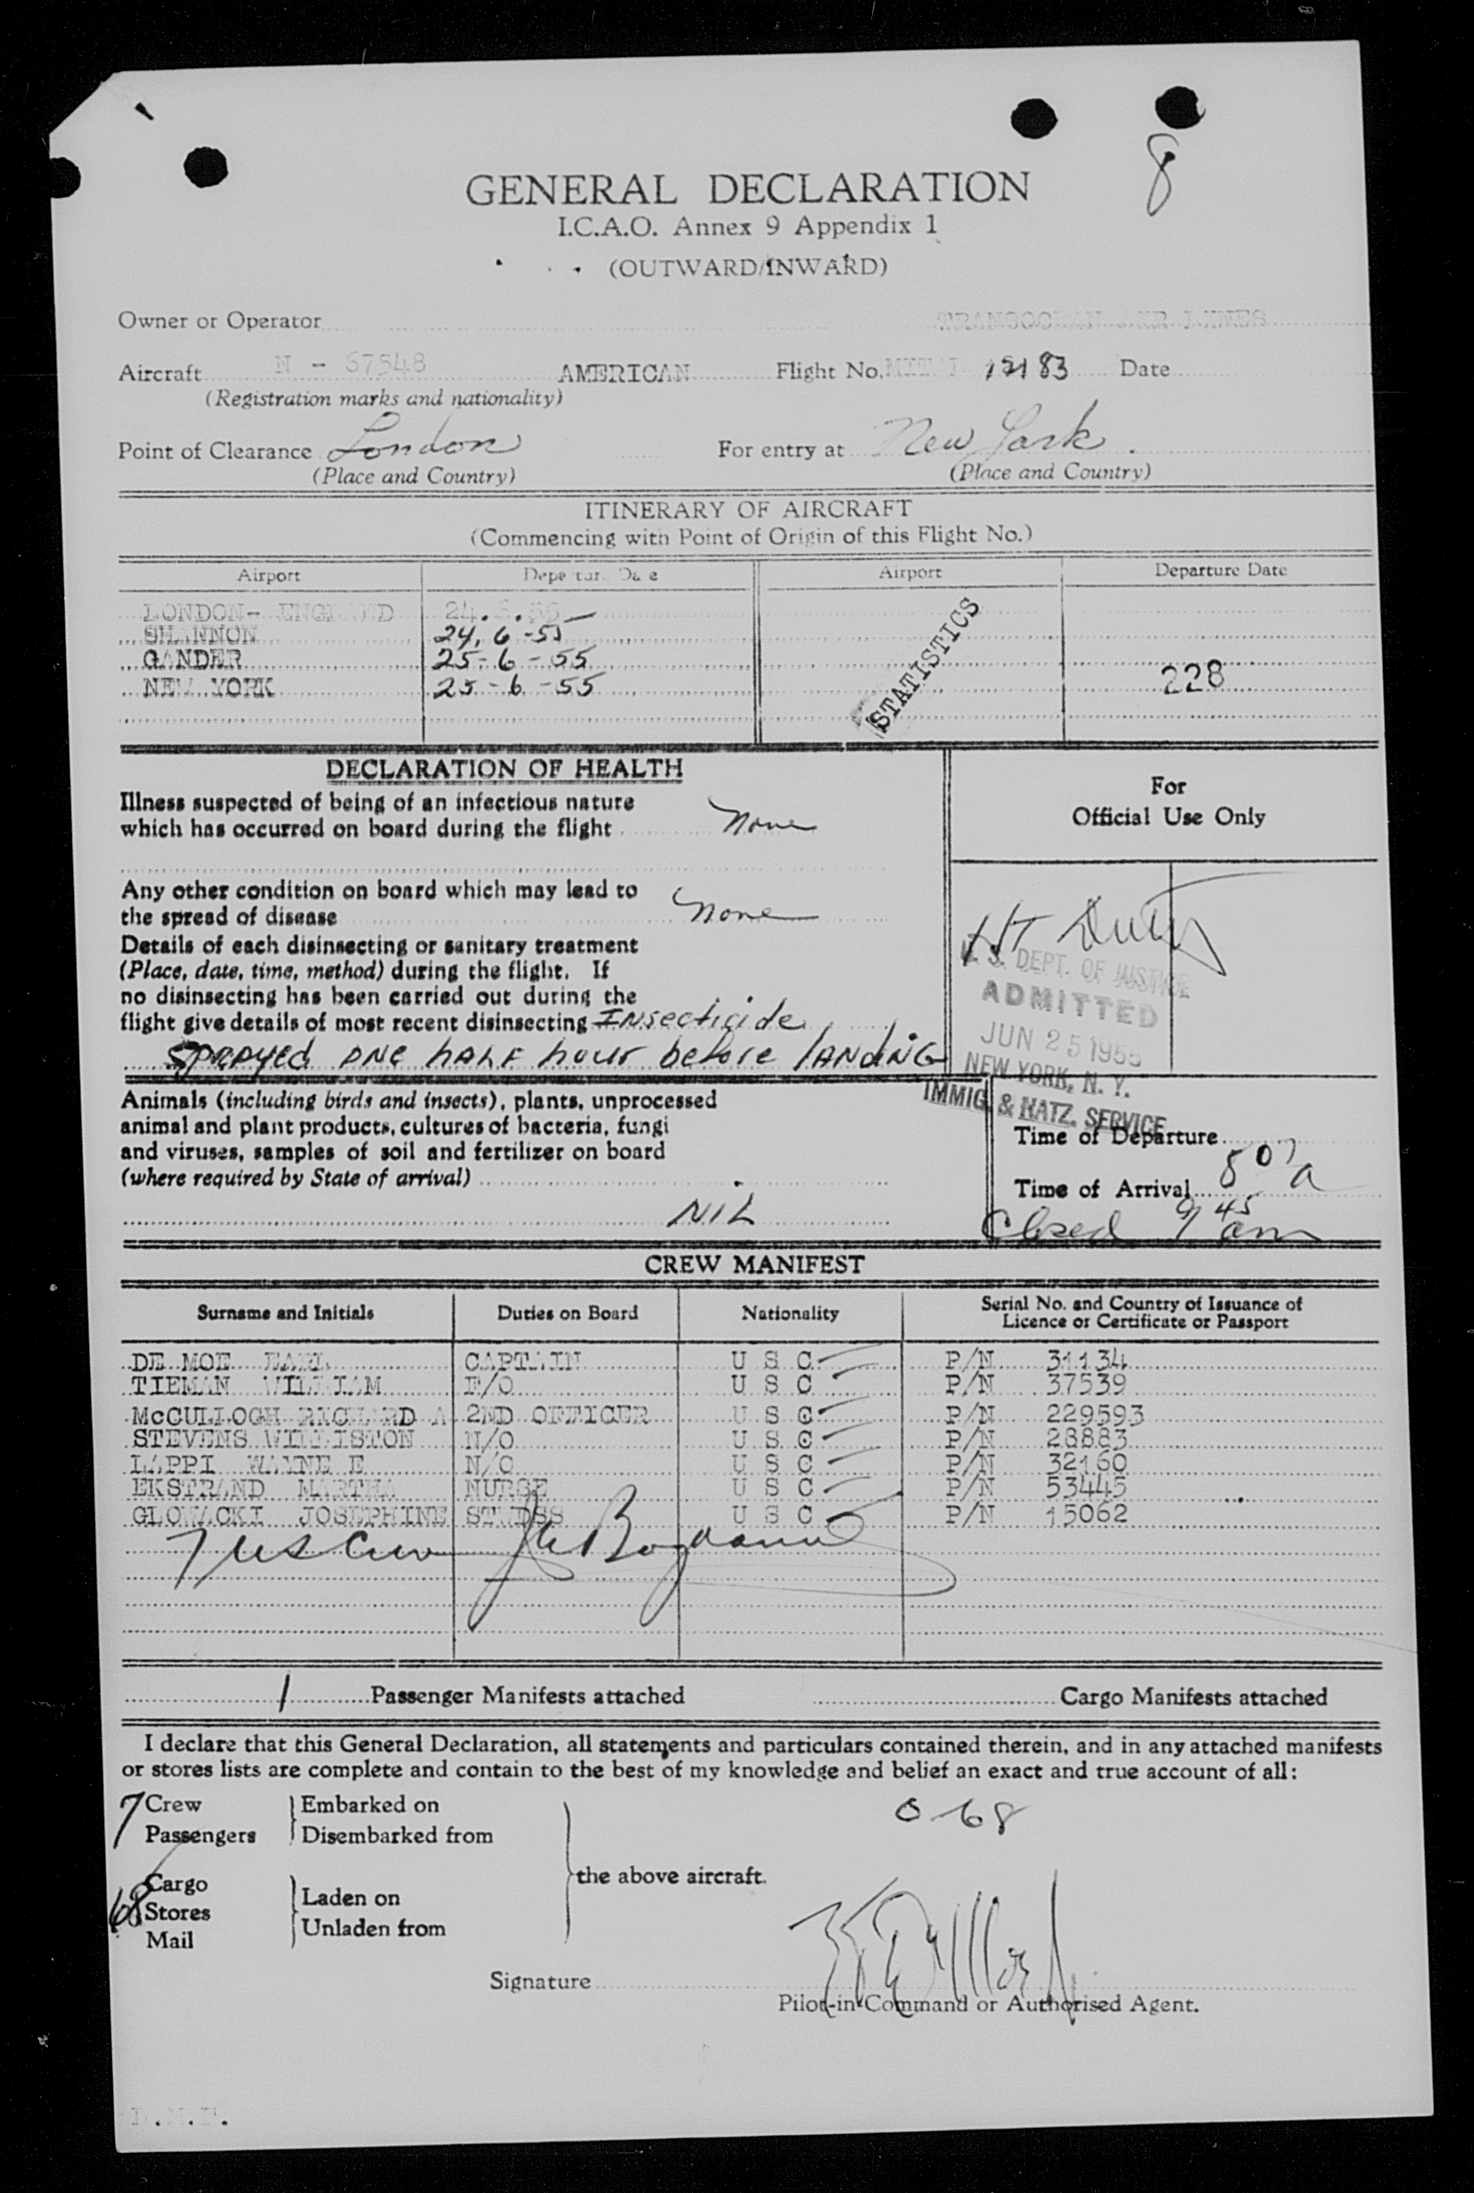 8
GENERAL DECLARATION
I.C.A.O. Annex 9 Appendix 1
(OUTWARD/INWARD)
Owner or Operator TRANSOCEAN AIR LINES
Aircraft N - 67548 AMERICAN Flight No. 83 Date
(Registration marks and nationality)
Point of Clearance London For entry at New York.
(Place and Country) (Place and Country)
ITINERARY OF AIRCRAFT
(Commencing with Point of Origin of this Flight No.)
Airport Departure Date Airport Departure Date
LONDON- ENGLAND 24.6.55
SHANNON 24.6-55
GANDER 25-6-55
NEW YORK 25-6-55
STATISTICS
228
DECLARATION OF HEALTH
Illness suspected of being of an infectious nature
which has occurred on board during the flight None
Any other condition on board which may lead to
the spread of disease None
Details of each disinsecting or sanitary treatment
(Place, date, time, method) during the flight. If
no disinsecting has been carried out during the
flight give details of most recent disinsecting INsecticide
SPRAYed ONE HALF hour before LANdiNG
For
Official Use Only
U. S. DEPT. OF JUSTICE
ADMITTED
JUN 25 1955
NEW YORK, N. Y.
IMMIG. & NATZ. SERVICE
Animals (including birds and insects), plants, unprocessed
animal and plant products, cultures of bacteria, fungi
and viruses, samples of soil and fertilizer on board
(where required by State of arrival)
NIL
Time of Departure
Time of Arrival 8 07 a
Closed 9 45 am
CREW MANIFEST
Surname and Initials Duties on Board Nationality Serial No. and Country of Issuance of
Licence or Certificate or Passport
DE MOE EARL CAPTAIN U S C P/N 31134
TIEMAN WILLIAM F/O U S C P/N 37539
McCULLOGH RICHARD A 2ND OFFICER U S C P/N 229593
STEVENS WILLISTON N/O U S C P/N 28883
LAPPI WAYNE E N/O U S C P/N 32160
EKSTRAND MARTHA NURSE U S C P/N 53445
GLOWACKI JOSEPHINE STWDSS U S C P/N 15062
7 US Crew
1 Passenger Manifests attached Cargo Manifests attached
I declare that this General Declaration, all statements and particulars contained therein, and in any attached manifests
or stores lists are complete and contain to the best of my knowledge and belief an exact and true account of all:
7 Crew Embarked on
Passengers Disembarked from
0-68
the above aircraft.
Cargo Laden on
68 Stores Unladen from
Mail
Signature
Pilot-in-Command or Authorised Agent.